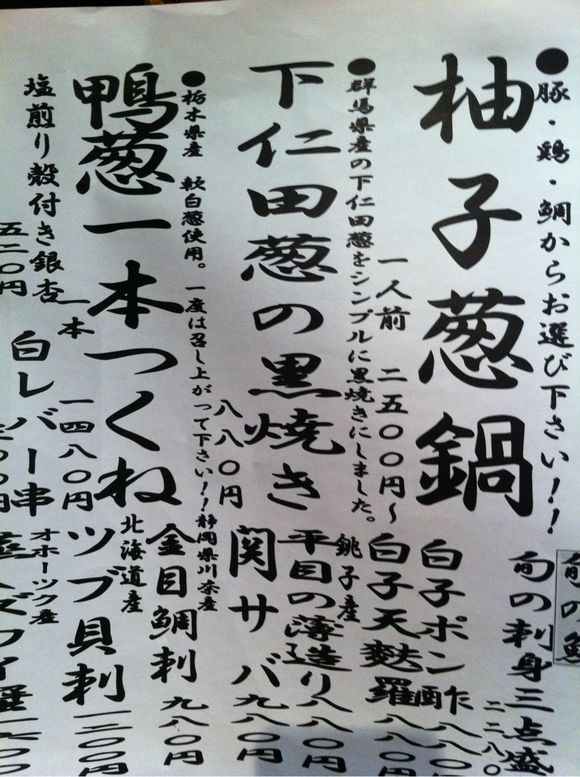 ●豚・鶏・鯛からお選び下さい!!
柚子葱鍋
一人前 二五〇〇円〜
●群馬県産の下仁田葱をシンプルに黒焼きにしました。
下仁田葱の黒焼き
八八〇円
●栃木県産 軟白葱使用。一度は召し上がって下さい!!
鴨葱一本つくね
一本 一四八〇円
塩煎り殻付き銀杏
五二〇円
白レバー串
旬の刺身三点盛
二二八〇
白子ポン酢
八八〇
白子天麩羅
八八〇
銚子産
平目の薄造り
八八〇円
関サバ
九八〇円
静岡県川奈産
金目鯛刺
九八〇円
北海道産
ツブ貝刺
一二〇〇円
オホーツク産